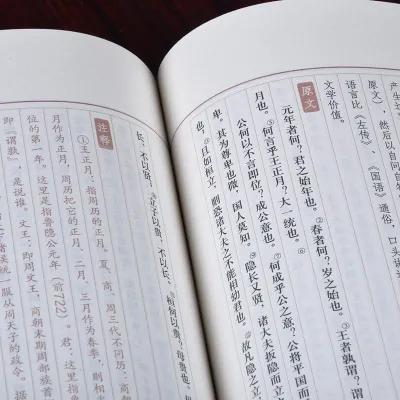 产生
原文），然后以自问自
语言比《左传》、《国语》通俗，口头
文学价值。
原文
元年者何？君之始年也。②春者何？岁之始也。③王者孰谓？谓
月也。⑤何言乎王正月？大一统也。⑥
公何以不言即位？成公意也。⑦何成乎公之意？公将平国而
卑。其为尊卑也微，国人莫知。⑨隐长又贤，诸大夫扳隐而立
也。⑪且如桓立，则恐诸大夫之不能相幼君也。⑫故凡隐之立
长，不以贤。⑭立子以贵，不以长。桓何以贵？母贵也。
注释
①王正月：指周历的正月。夏、商、周三代不同历：
月作为正月，周历把它的正月、二月、三月作为春季，则相
位的第一年。这里是指鲁隐公元年（前722）。君：这里
即“谓孰”，是说谁。文王：即周文王，商朝末期周部族首
统一服从周天子的政令。